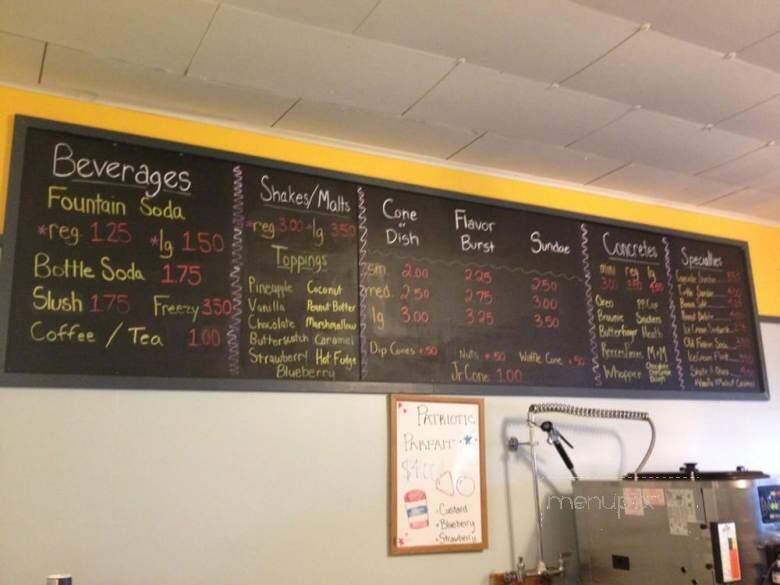 Beverages
Fountain Soda
*reg 1.25 *lg 1.50
Bottle Soda 1.75
Slush 1.75 Freezy 3.50
Coffee / Tea 1.00
Shakes/Malts
*reg 3.00 *lg 3.50
Toppings
Pineapple Coconut
Vanilla Peanut Butter
Chocolate Marshmallow
Butterscotch Caramel
Strawberry Hot Fudge
Blueberry
Cone or Dish Flavor Burst Sundae
sm 2.00 2.25 2.50
med 2.50 2.75 3.00
lg 3.00 3.25 3.50
Dip Cones +.50 Nuts +.50 Waffle Cone +.50
Jr Cone 1.00
Concretes
mini reg lg
Oreo
Brownie Snickers
Butterfinger Heath
M+M
Whopper Chocolate Chip Cookie Dough
Specialties
PATRIOTIC
PARFAIT
- Custard
- Blueberry
- Strawberry
menupix